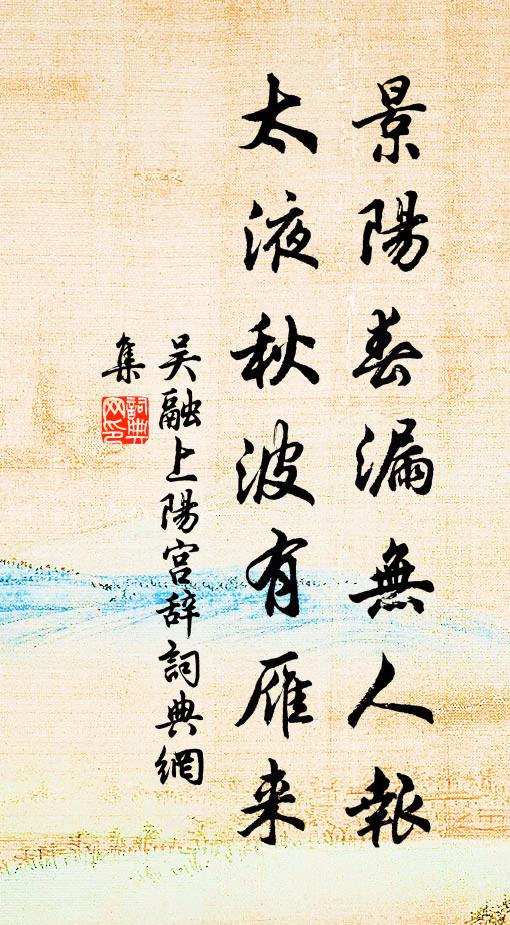 景陽春漏無人報
太液秋波有雁来
吴融上陽宫辞詞典網
集
詞典
网印